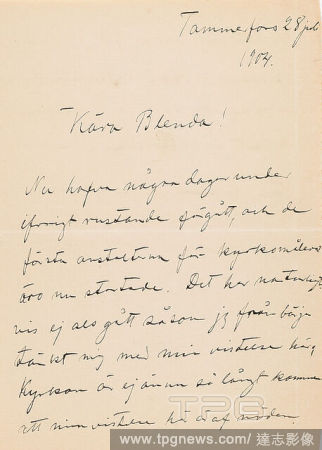 Tammerfors 28 juli
1904.
Kära Blenda!
Nu hafva några dagar under
ifrigt rustande förgått, och de
första anstalterna för kyrkomåleri
äro nu startade. Det har naturligt
vis ej alls gått såsom jag från börja
tänkt mig med min vistelse här,
Kyrkan är ej ännu så långt kommen
att min vistelse här af nöden
TPG
www.tpgnews.com / 達志影像